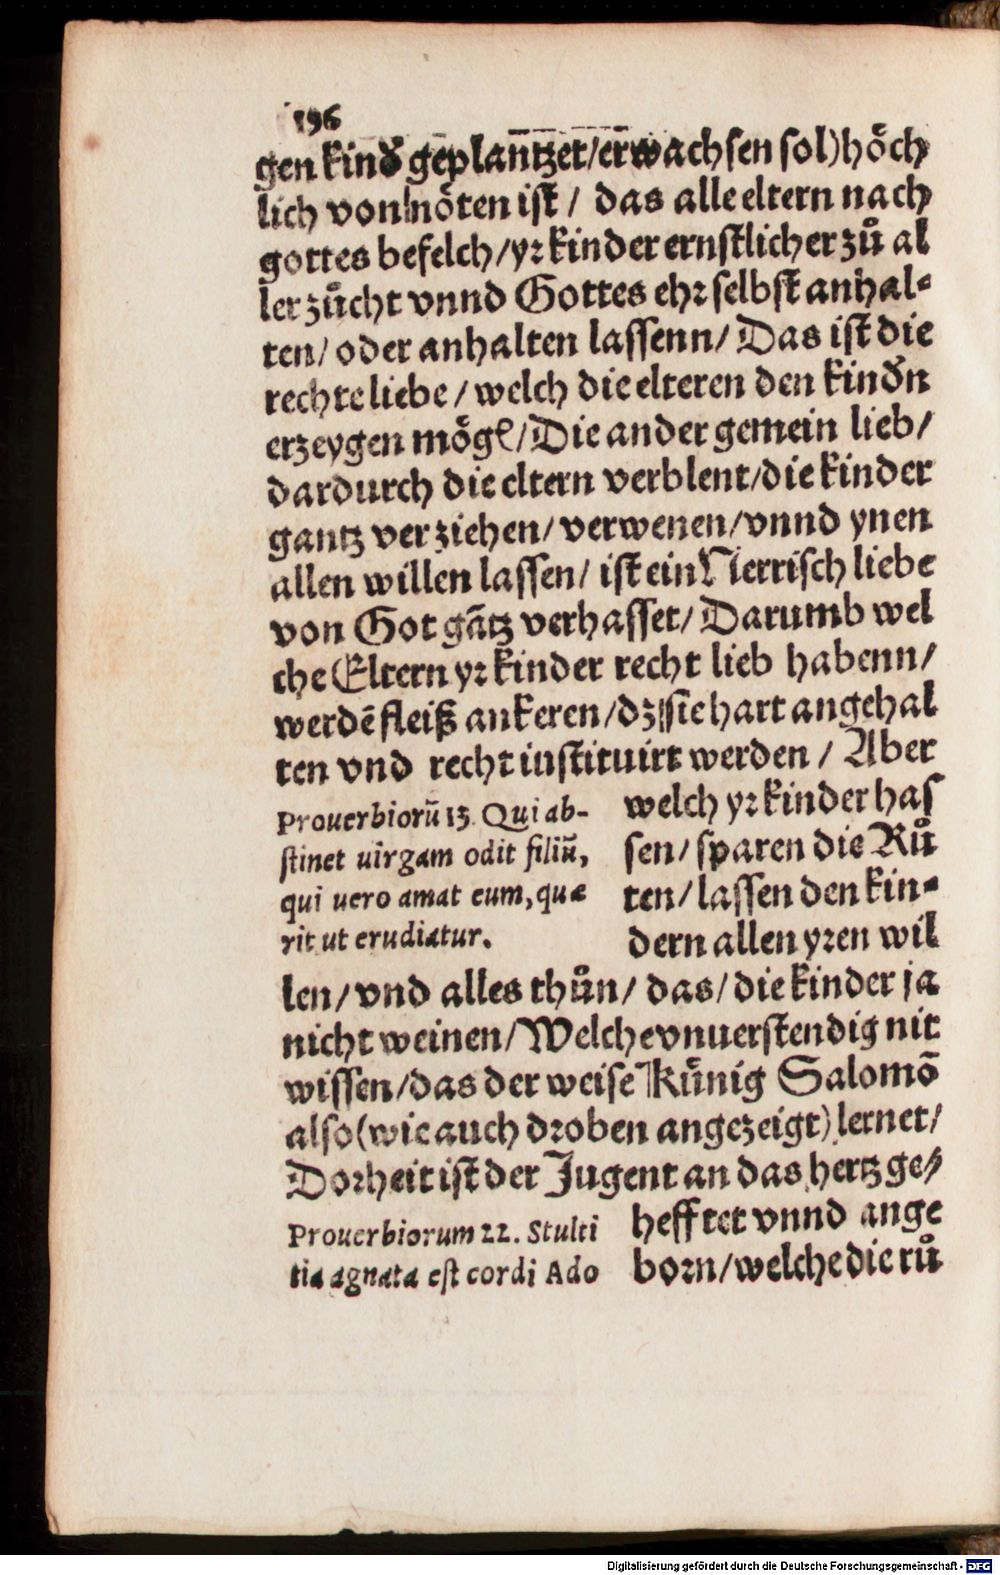 196
gen kinď geplantzet/erwachsen sol)hoͤch
lich von noͤten ist / das alle eltern nach
gottes befelch/yꝛ kinder ernstlicher zuͦ al
ler zuͤcht vnnd Gottes ehꝛ selbst anhal-
ten/ oder anhalten lassenn/ Das ist die
rechte liebe / welch die elteren den kinďn
erzeygen moͤgē/Die ander gemein lieb/
dardurch die eltern verblent/die kinder
gantz verziehen/ verwenen/vnnd ynen
allen willen lassen/ ist ein Nerrisch liebe
von Got gātz verhasset/ Darumb wel
che Eltern yꝛ kinder recht lieb habenn/
werdē fleiß ankeren/dz sie hart angehal
ten vnd recht instituirt werden / Aber
welch yꝛ kinder has
sen/ sparen die Ruͦ
ten/ lassen den kin-
dern allen yꝛen wil
Prouerbiorū 13. Qui ab-
stinet uirgam odit filiū,
qui uero amat eum, quæ
rit ut erudiatur.
len/ vnd alles thuͦn/ das/ die kinder ja
nicht weinen/Welche vnuerstendig nit
wissen/das der weise Kuͤnig Salomō
also(wie auch dꝛoben angezeigt) lernet/
Doꝛheit ist der Jugent an das hertz ge/
hefftet vnnd ange
boꝛn/welche die ruͦ
Prouerbiorum 22. Stulti
tia agnata est cordi Ado
Digitalisierung gefördert durch die Deutsche Forschungsgemeinschaft - DFG